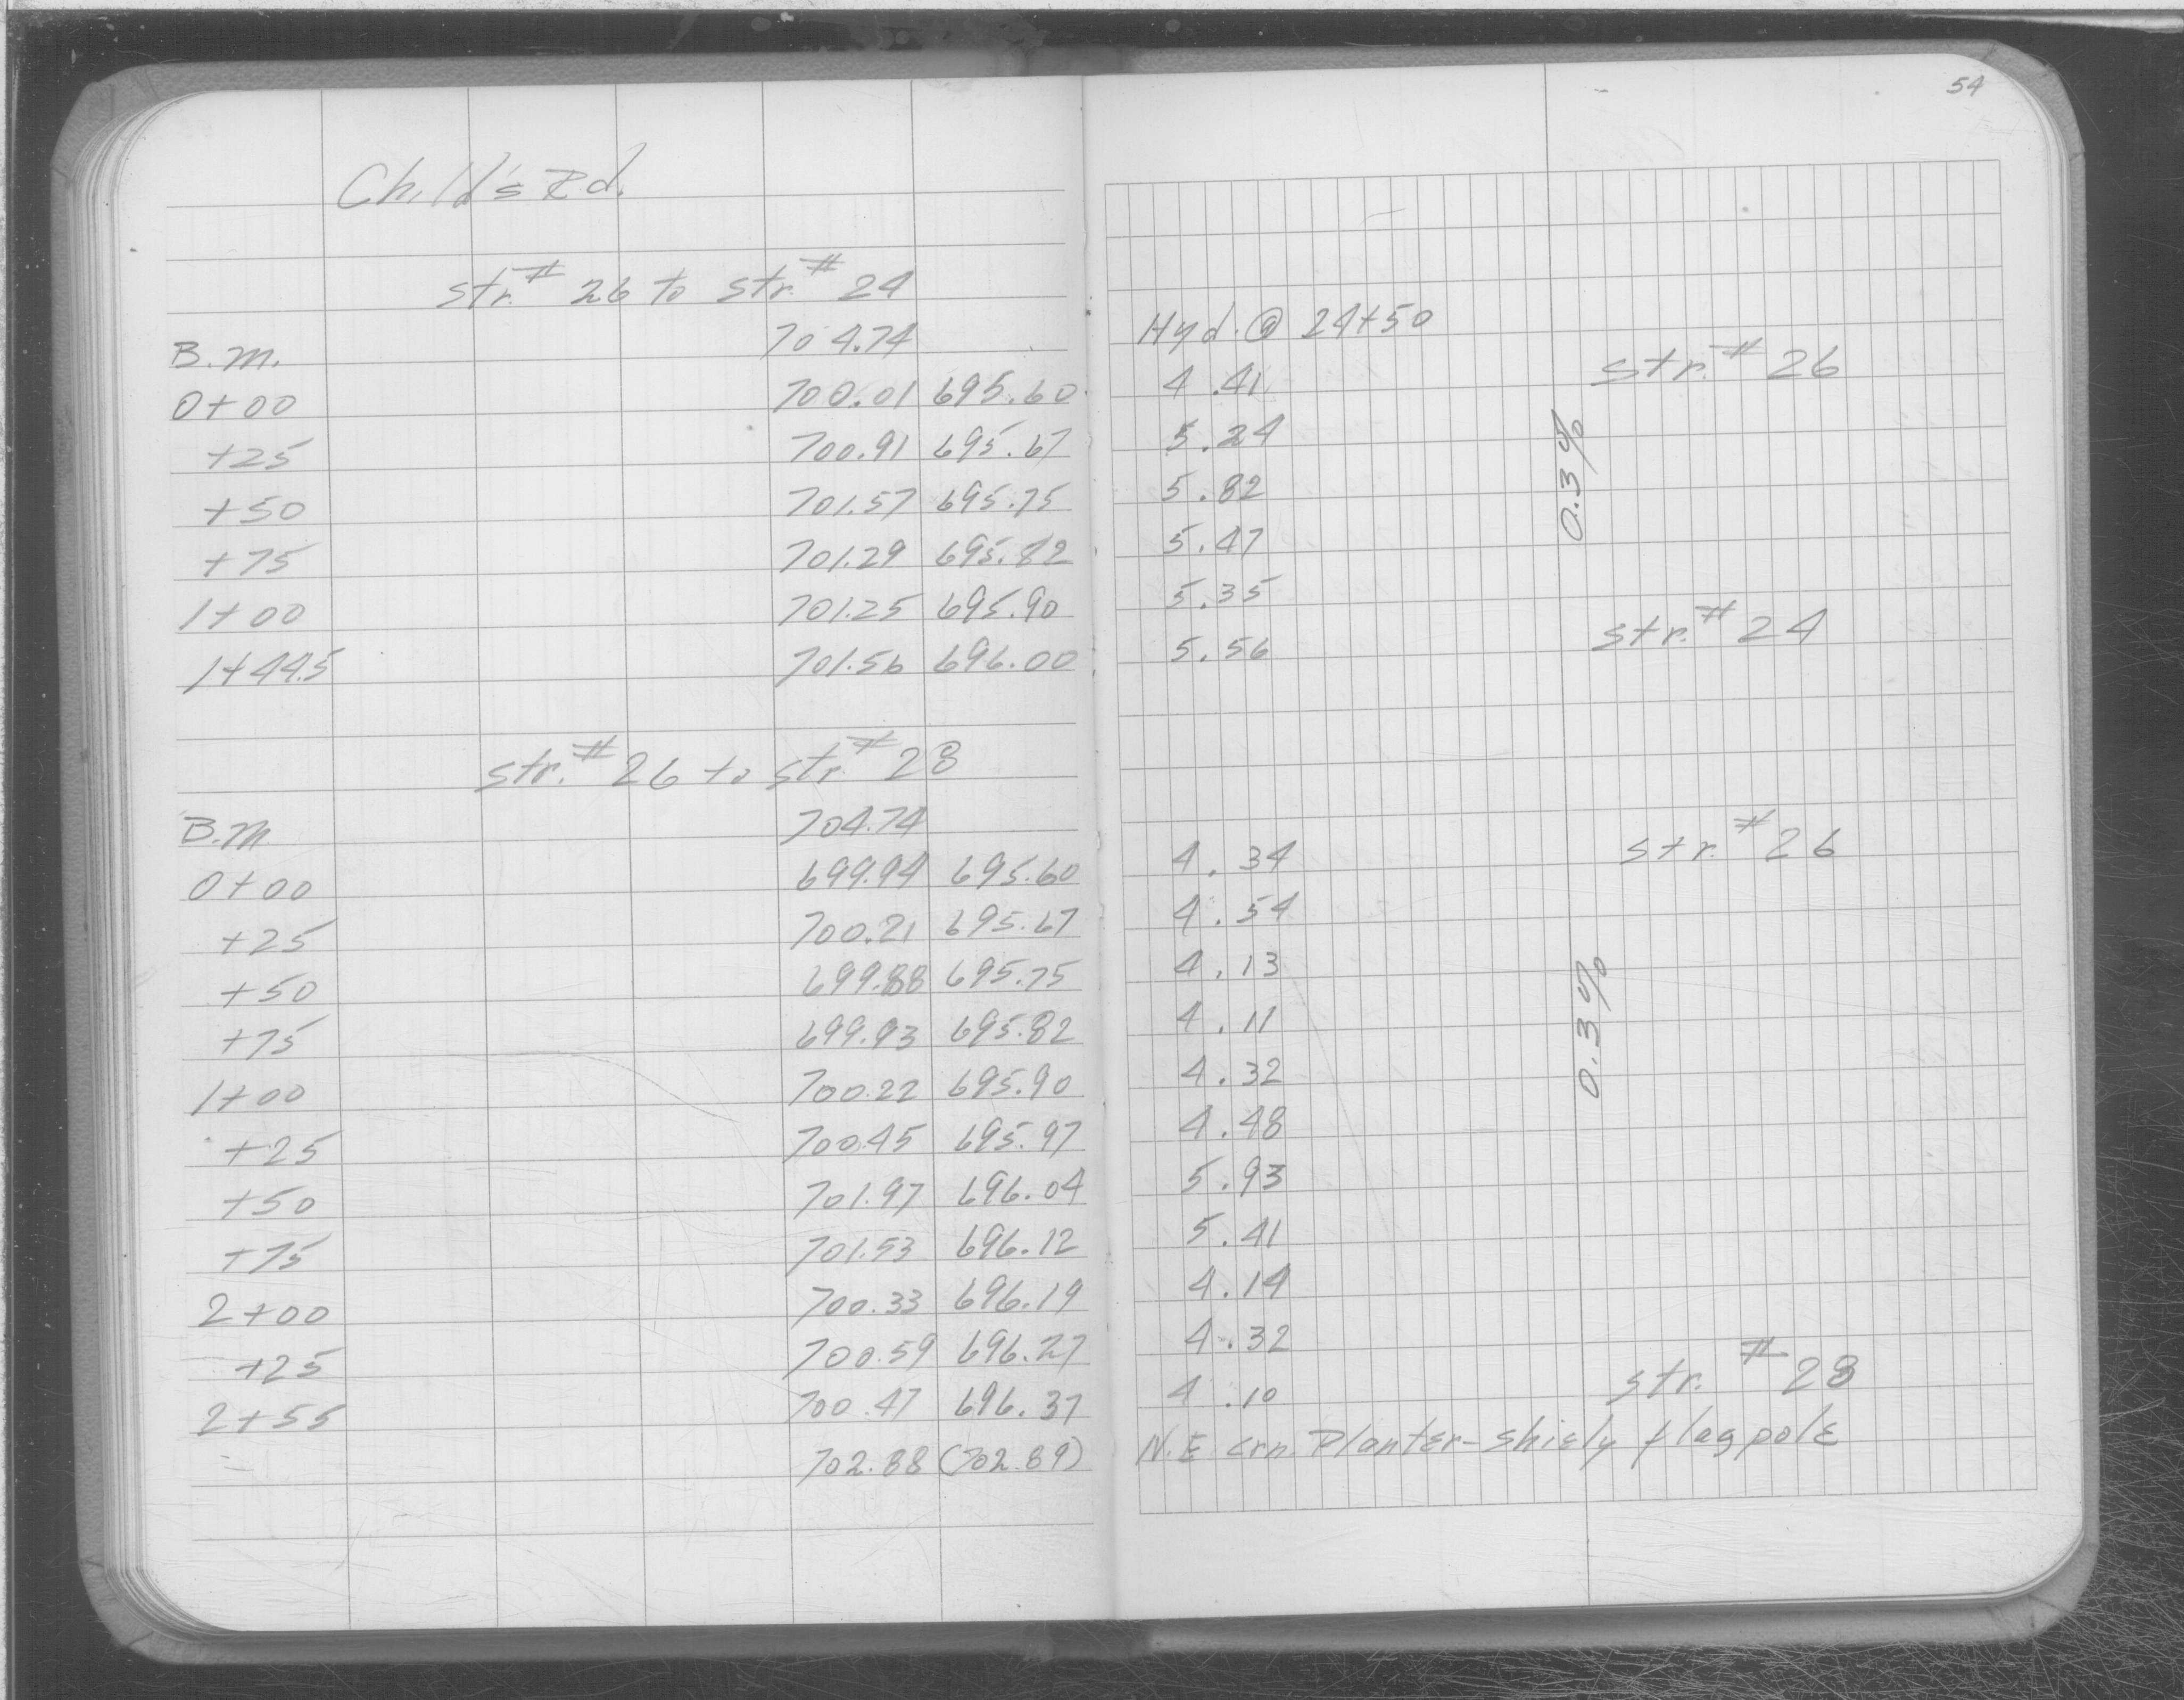 54
Child's Rd.
str.# 26 to str.# 24
B.M. 704.74 Hyd. @ 24+50
0+00 700.01 695.60 4.41 str.# 26
+25 700.91 695.67 5.24
+50 701.57 695.75 5.82
0.3%
+75 701.29 695.82 5.47
1+00 701.25 695.90 5.35
1+44.5 701.56 696.00 5.56 str.# 24
str.# 26 to str.# 28
B.M. 704.74
0+00 699.94 695.60 4.34 str.# 26
+25 700.21 695.67 4.54
+50 699.88 695.75 4.13
+75 699.93 695.82 4.11
0.3%
1+00 700.22 695.90 4.32
+25 700.45 695.97 4.48
+50 701.97 696.04 5.93
+75 701.53 696.12 5.41
2+00 700.33 696.19 4.14
+25 700.59 696.27 4.32
2+55 700.47 696.37 4.10 str. # 28
702.88 (702.89) N.E. crn. Planter-shiely flagpole